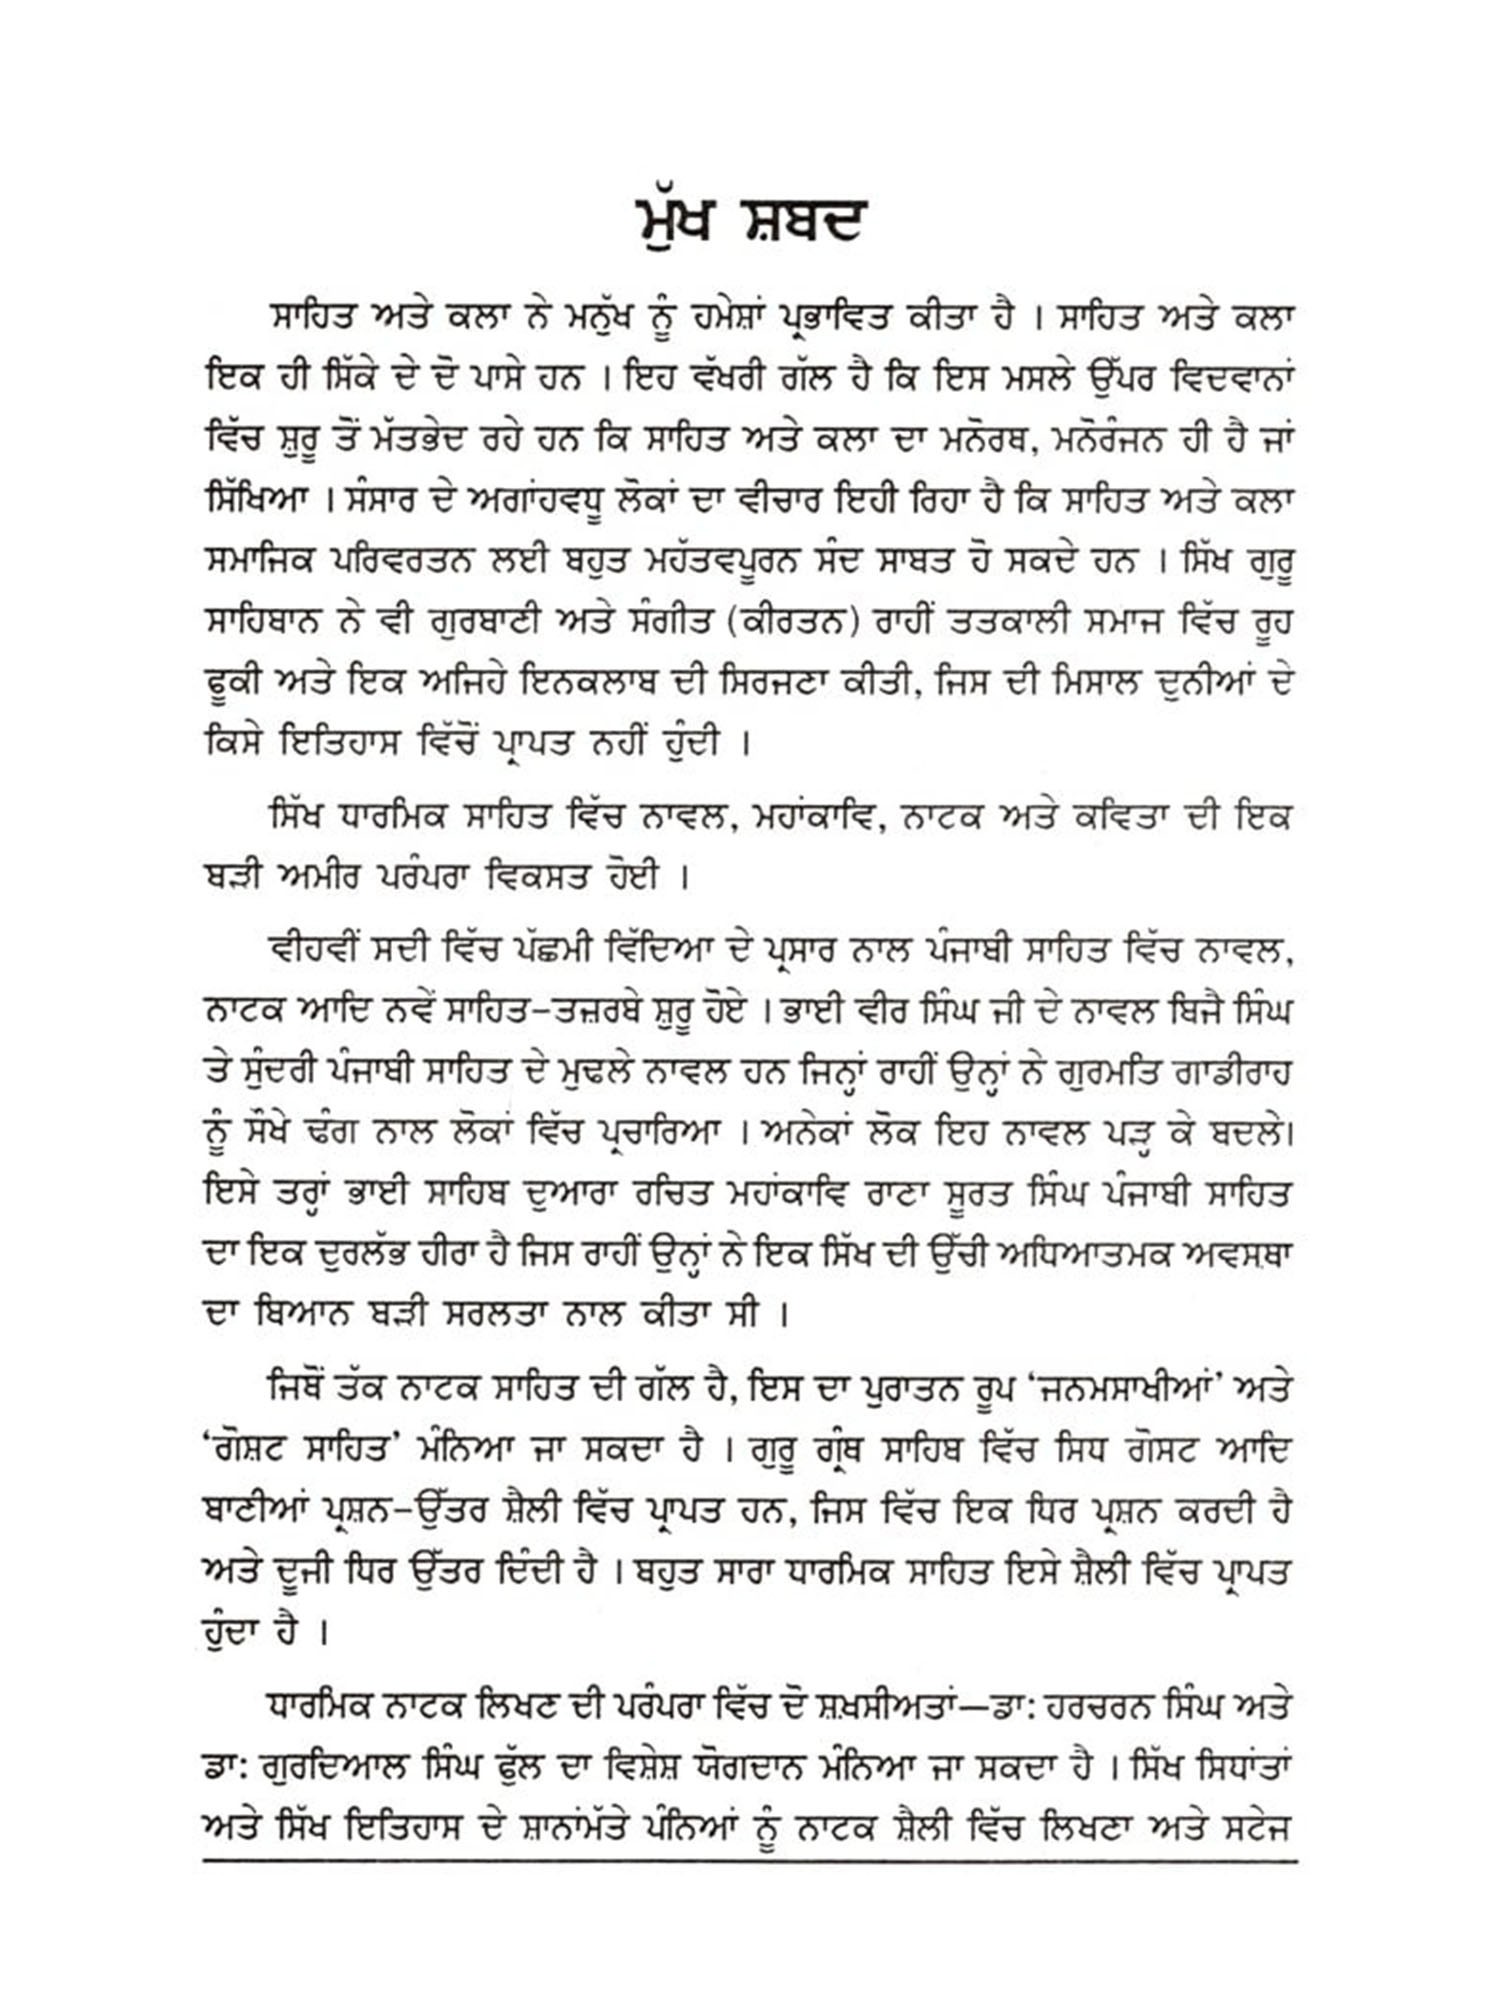 ਮੁੱਖ ਸ਼ਬਦ
ਸਾਹਿਤ ਅਤੇ ਕਲਾ ਨੇ ਮਨੁੱਖ ਨੂੰ ਹਮੇਸ਼ਾਂ ਪ੍ਰਭਾਵਿਤ ਕੀਤਾ ਹੈ । ਸਾਹਿਤ ਅਤੇ ਕਲਾ
ਇਕ ਹੀ ਸਿੱਕੇ ਦੇ ਦੋ ਪਾਸੇ ਹਨ । ਇਹ ਵੱਖਰੀ ਗੱਲ ਹੈ ਕਿ ਇਸ ਮਸਲੇ ਉੱਪਰ ਵਿਦਵਾਨਾਂ
ਵਿੱਚ ਸ਼ੁਰੂ ਤੋਂ ਮੱਤਭੇਦ ਰਹੇ ਹਨ ਕਿ ਸਾਹਿਤ ਅਤੇ ਕਲਾ ਦਾ ਮਨੋਰਥ, ਮਨੋਰੰਜਨ ਹੀ ਹੈ ਜਾਂ
ਸਿੱਖਿਆ । ਸੰਸਾਰ ਦੇ ਅਗਾਂਹਵਧੂ ਲੋਕਾਂ ਦਾ ਵੀਚਾਰ ਇਹੀ ਰਿਹਾ ਹੈ ਕਿ ਸਾਹਿਤ ਅਤੇ ਕਲਾ
ਸਮਾਜਿਕ ਪਰਿਵਰਤਨ ਲਈ ਬਹੁਤ ਮਹੱਤਵਪੂਰਨ ਸੰਦ ਸਾਬਤ ਹੋ ਸਕਦੇ ਹਨ । ਸਿੱਖ ਗੁਰੂ
ਸਾਹਿਬਾਨ ਨੇ ਵੀ ਗੁਰਬਾਣੀ ਅਤੇ ਸੰਗੀਤ (ਕੀਰਤਨ) ਰਾਹੀਂ ਤਤਕਾਲੀ ਸਮਾਜ ਵਿੱਚ ਰੂਹ
ਫੂਕੀ ਅਤੇ ਇਕ ਅਜਿਹੇ ਇਨਕਲਾਬ ਦੀ ਸਿਰਜਣਾ ਕੀਤੀ, ਜਿਸ ਦੀ ਮਿਸਾਲ ਦੁਨੀਆਂ ਦੇ
ਕਿਸੇ ਇਤਿਹਾਸ ਵਿੱਚੋਂ ਪ੍ਰਾਪਤ ਨਹੀਂ ਹੁੰਦੀ ।
ਸਿੱਖ ਧਾਰਮਿਕ ਸਾਹਿਤ ਵਿੱਚ ਨਾਵਲ, ਮਹਾਂਕਾਵਿ, ਨਾਟਕ ਅਤੇ ਕਵਿਤਾ ਦੀ ਇਕ
ਬੜੀ ਅਮੀਰ ਪਰੰਪਰਾ ਵਿਕਸਤ ਹੋਈ ।
ਵੀਹਵੀਂ ਸਦੀ ਵਿੱਚ ਪੱਛਮੀ ਵਿੱਦਿਆ ਦੇ ਪ੍ਰਸਾਰ ਨਾਲ ਪੰਜਾਬੀ ਸਾਹਿਤ ਵਿੱਚ ਨਾਵਲ,
ਨਾਟਕ ਆਦਿ ਨਵੇਂ ਸਾਹਿਤ-ਤਜ਼ਰਬੇ ਸ਼ੁਰੂ ਹੋਏ । ਭਾਈ ਵੀਰ ਸਿੰਘ ਜੀ ਦੇ ਨਾਵਲ ਬਿਜੈ ਸਿੰਘ
ਤੇ ਸੁੰਦਰੀ ਪੰਜਾਬੀ ਸਾਹਿਤ ਦੇ ਮੁਢਲੇ ਨਾਵਲ ਹਨ ਜਿਨ੍ਹਾਂ ਰਾਹੀਂ ਉਨ੍ਹਾਂ ਨੇ ਗੁਰਮਤਿ ਗਾਡੀਰਾਹ
ਨੂੰ ਸੌਖੇ ਢੰਗ ਨਾਲ ਲੋਕਾਂ ਵਿੱਚ ਪ੍ਰਚਾਰਿਆ । ਅਨੇਕਾਂ ਲੋਕ ਇਹ ਨਾਵਲ ਪੜ੍ਹ ਕੇ ਬਦਲੇ।
ਇਸੇ ਤਰ੍ਹਾਂ ਭਾਈ ਸਾਹਿਬ ਦੁਆਰਾ ਰਚਿਤ ਮਹਾਂਕਾਵਿ ਰਾਣਾ ਸੂਰਤ ਸਿੰਘ ਪੰਜਾਬੀ ਸਾਹਿਤ
ਦਾ ਇਕ ਦੁਰਲੱਭ ਹੀਰਾ ਹੈ ਜਿਸ ਰਾਹੀਂ ਉਨ੍ਹਾਂ ਨੇ ਇਕ ਸਿੱਖ ਦੀ ਉੱਚੀ ਅਧਿਆਤਮਕ ਅਵਸਥਾ
ਦਾ ਬਿਆਨ ਬੜੀ ਸਰਲਤਾ ਨਾਲ ਕੀਤਾ ਸੀ ।
ਜਿਥੋਂ ਤੱਕ ਨਾਟਕ ਸਾਹਿਤ ਦੀ ਗੱਲ ਹੈ, ਇਸ ਦਾ ਪੁਰਾਤਨ ਰੂਪ ‘ਜਨਮਸਾਖੀਆਂ’ ਅਤੇ
‘ਗੋਸ਼ਟ ਸਾਹਿਤ’ ਮੰਨਿਆ ਜਾ ਸਕਦਾ ਹੈ । ਗੁਰੂ ਗ੍ਰੰਥ ਸਾਹਿਬ ਵਿੱਚ ਸਿਧ ਗੋਸਟ ਆਦਿ
ਬਾਣੀਆਂ ਪ੍ਰਸ਼ਨ-ਉੱਤਰ ਸ਼ੈਲੀ ਵਿੱਚ ਪ੍ਰਾਪਤ ਹਨ, ਜਿਸ ਵਿੱਚ ਇਕ ਧਿਰ ਪ੍ਰਸ਼ਨ ਕਰਦੀ ਹੈ
ਅਤੇ ਦੂਜੀ ਧਿਰ ਉੱਤਰ ਦਿੰਦੀ ਹੈ । ਬਹੁਤ ਸਾਰਾ ਧਾਰਮਿਕ ਸਾਹਿਤ ਇਸੇ ਸ਼ੈਲੀ ਵਿੱਚ ਪ੍ਰਾਪਤ
ਹੁੰਦਾ ਹੈ ।
ਧਾਰਮਿਕ ਨਾਟਕ ਲਿਖਣ ਦੀ ਪਰੰਪਰਾ ਵਿੱਚ ਦੋ ਸ਼ਖ਼ਸੀਅਤਾਂ—ਡਾ: ਹਰਚਰਨ ਸਿੰਘ ਅਤੇ
ਡਾ: ਗੁਰਦਿਆਲ ਸਿੰਘ ਫੁੱਲ ਦਾ ਵਿਸ਼ੇਸ਼ ਯੋਗਦਾਨ ਮੰਨਿਆ ਜਾ ਸਕਦਾ ਹੈ । ਸਿੱਖ ਸਿਧਾਂਤਾਂ
ਅਤੇ ਸਿੱਖ ਇਤਿਹਾਸ ਦੇ ਸ਼ਾਨਾਂਮੱਤੇ ਪੰਨਿਆਂ ਨੂੰ ਨਾਟਕ ਸ਼ੈਲੀ ਵਿੱਚ ਲਿਖਣਾ ਅਤੇ ਸਟੇਜ